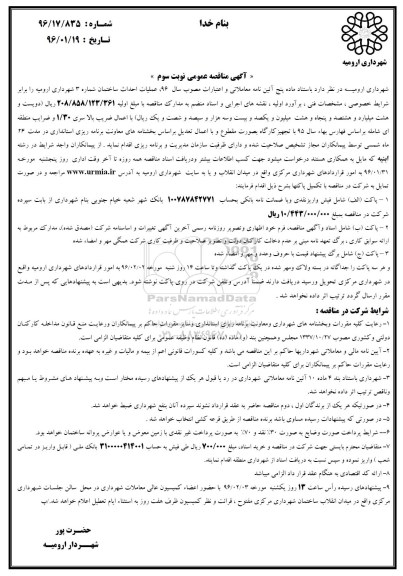 بنام خدا
شماره : ۹۶/۱۷/۸۳۵
تاریخ : ۹۶/۰۱/۱۹
شهرداری ارومیه
« آگهی مناقصه عمومی نوبت سوم »
شهرداری ارومیــه در نظر دارد باستناد ماده پنج آئین نامه معاملاتی و اعتبارات مصوب سال ۹۶، عملیات احداث ساختمان شماره ۳ شهرداری ارومیه را برابر
شرایط خصوصی ، مشخصات فنی ، برآورد اولیه ، نقشه های اجرایی و اسناد منضم به مدارک مناقصه با مبلغ اولیه ۲۰۸/۸۵۸/۱۲۳/۳۶۱ ریال (دویست و
هشت میلیارد و هشتصد و پنجاه و هشت میلیون و یکصد و بیست وسه هزار و سیصد و شصت و یک ریال) با اعمال ضریب بالا سری ۱/۳۰ و ضرایب منطقه
ای شامله براساس فهارس بهاء سال ۹۵ با تجهیزکارگاه بصورت مقطوع و با اعمال تعدیل براساس بخشنامه های معاونت برنامه ریزی استانداری در مدت ۲۴
ماه شمسی توسط پیمانکاران مجاز تشخیص صلاحیت شده و دارای ظرفیت سازمان مدیریت و برنامه ریزی اقدام نماید . از پیمانکاران واجد شرایط در رشته
ابنیه که مایل به همکاری هستند درخواست میشود جهت کسب اطلاعات بیشتر ودریافت اسناد مناقصه همه روزه تا آخر وقت اداری روز پنجشنبه مورخه
۹۶/۰۱/۳۱ به امور قراردادهای شهرداری مرکزی واقع در میدان انقلاب و یا به سایت شهرداری ارومیه به آدرس www.urmia.ir مراجعه و در صورت
تمایل به شرکت در مناقصه با تکمیل پاکتها بشرح ذیل اقدام فرمایند:
۱ – پاکت (الف) شامل فیش واریزنقدی ویا ضمانت نامه بانکی بحساب ۱۰۰۷۸۷۸۴۲۷۷۱ بانک شهر شعبه خیام جنوبی بنام شهرداری از بابت سپرده
شرکت در مناقصه بمبلغ ۱۰/۴۴۳/۰۰۰/۰۰۰ ریال
۲ – پاکت (ب) شامل اسناد وآگهی مناقصه، فرم خود اظهاری وتصویر روزنامه رسمی آخرین آگهی تغییرات و اساسنامه شرکت (مصدق شده)، مدارک مربوط به
ارائه سوابق کاری ، برگ تعهد نامه مبنی بر عدم دخالت کارکنان دولت و تصویر صلاحیت و ظرفیت کاری شرکت همگی مهر و امضاء شده
۳ – پاکت (ج) شامل برگ پیشنهاد قیمت با حروف وعدد و بمهر و امضاء شده
و هر سه پاکت را جداگانه در بسته ولاک ومهر شده در یک پاکت گذاشته وتا ساعت ۱۴ روز شنبه مورخه ۹۶/۰۲/۰۲ به امور قراردادهای شهرداری ارومیه واقع
در شهرداری مرکزی تحویل ورسید دریافت دارند ضمناً آدرس وتلفن شرکت در روی پاکت نوشته شود. بدیهی است به پیشنهادهایی که پس از مدت
مقرر ارسال گردد ترتیب اثر داده نخواهد شد .
شرایط شرکت در مناقصه :
۱– رعایت کلیه مقررات وبخشنامه های شهرداری ومعاونت برنامه ریزی استانداری وسایر مقررات حاکم بر پیمانکاران ورعایت منع قانون مداخله کارکنان
دولتی وکشوری مصوب ۱۳۳۷/۱۰/۲۷ مجلس وهمچنین بند (و)ماده (ده) قانون نظام وظیفه عمومی برای کلیه متقاضیان الزامی است.
۲– آیین نامه مالی و معاملاتی شهرداریها حاکم بر این مناقصه می باشد و کلیه کسورات قانونی اعم از بیمه و مالیات و غیره به عهده برنده مناقصه خواهد بود و
رعایت مقررات حاکم بر پیمانکاران برای کلیه متقاضیان الزامی است.
۳– شهرداری باستناد بند ۴ ماده ۱۰ آئین نامه معاملاتی شهرداری در رد یا قبول هر یک از پیشنهادهای رسیده مختار است وبه پیشنهاد های مشروط یا مبهم
وناقص ترتیب اثر داده نخواهد شد.
۴– در صورتیکه هر یک از برندگان اول ، دوم مناقصه حاضر به عقد قرارداد نشوند سپرده آنان بنفع شهرداری ضبط خواهد شد.
۵– در صورتی که پیشنهادات رسیده مساوی باشد برنده مناقصه از طریق قرعه کشی انتخاب خواهد شد .
۶– شرایط پرداخت صورت وضایع به صورت ۳۰٪ نقد و ۷۰٪ به صورت پرداخت غیر نقدی با زمین معرض و یا عوارض پروانه ساختمان خواهد بود.
۷– متقاضیان محترم بایستی جهت شرکت در مناقصه و خرید اسناد، مبلغ ۷۰۰/۰۰۰ ریال طی فیش به حساب ۳۱۰۰۰۰۰۴۱۴۰۰۱ بانک ملی ( قابل واریز در تمامی
شعب ) واریز نموده و سپس نسبت به دریافت اسناد از شهرداری منطقه اقدام نمایند.
۸– ارائه کد اقتصادی به هنگام عقد قرار داد الزامی میباشد
۹– پیشنهادهای رسیده رأس ساعت ۱۳ روز یکشنبه مورخه ۹۶/۰۲/۰۳ با حضور اعضاء کمیسیون عالی معاملات شهرداری در محل سالن جلسات شهرداری
مرکزی واقع در میدان انقلاب ساختمان شهرداری مرکزی مفتوح ، قرائت و نظر کمیسیون ظرف هفت روز به استثناء ایام تعطیل اعلام خواهد شد.
حضــرت پور
شهــردار ارومیــه
ParsNamadData